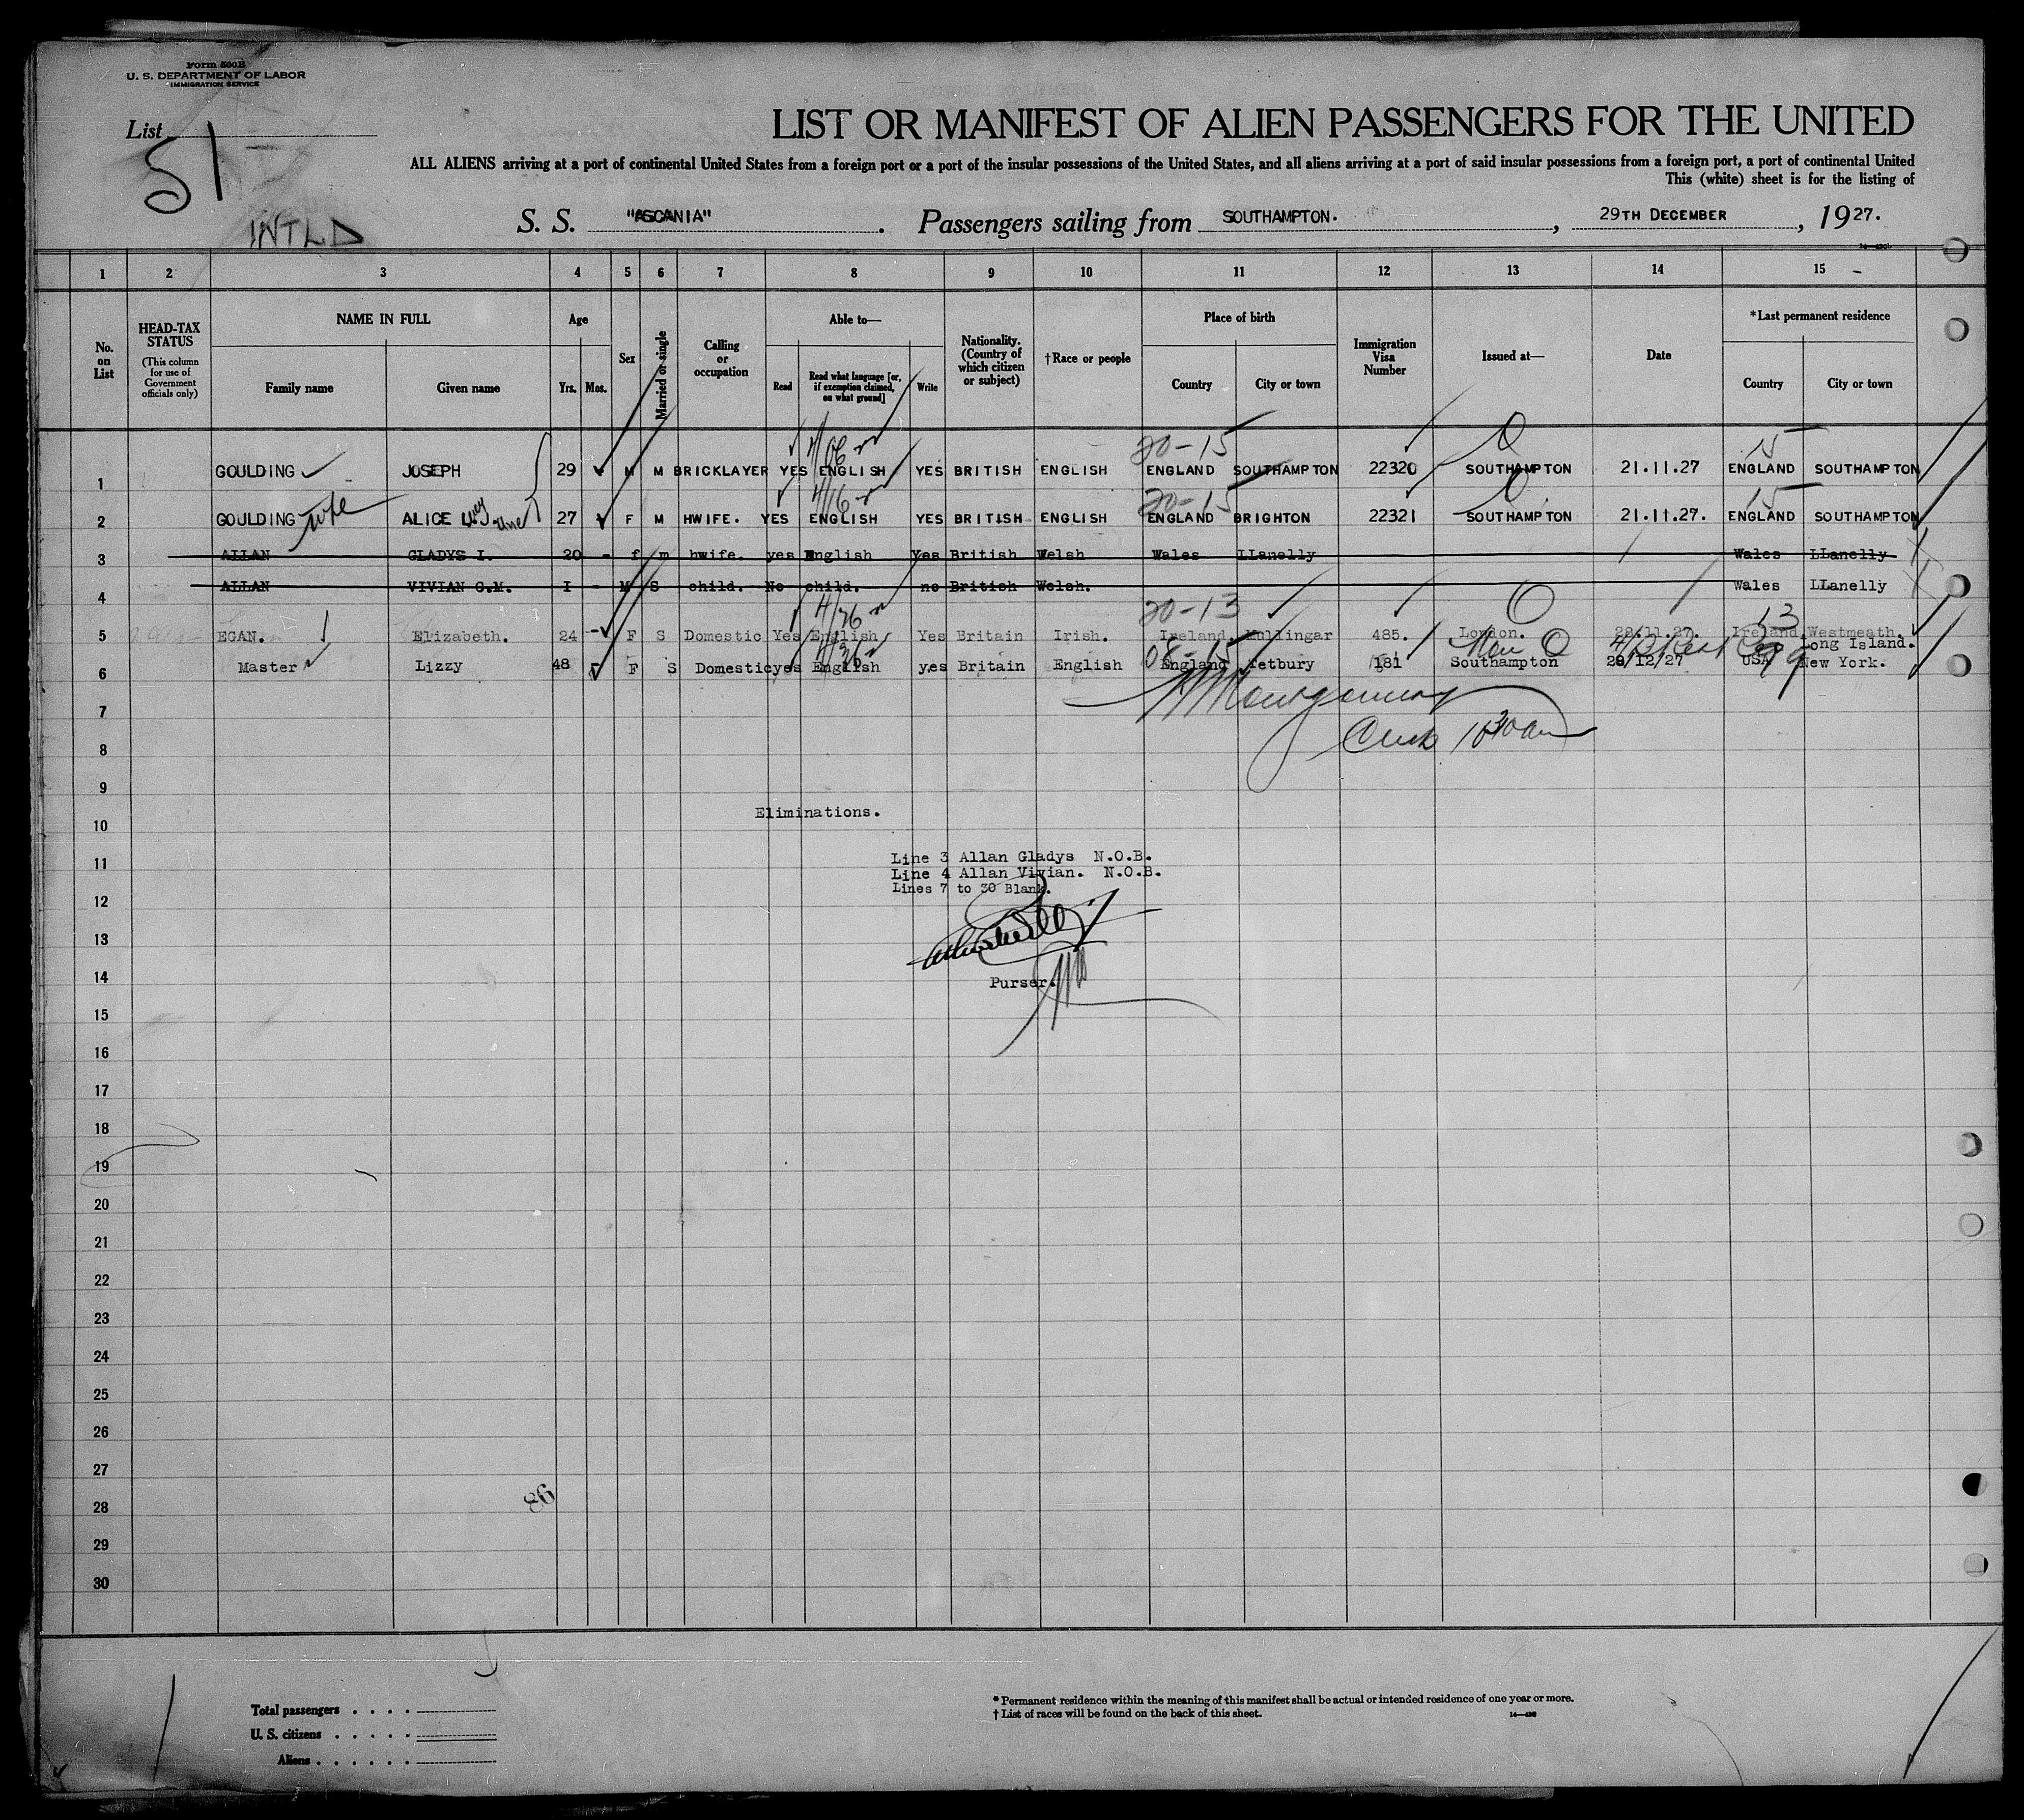 Form 500B
U. S. DEPARTMENT OF LABOR
IMMIGRATION SERVICE
List
51
INTLD
LIST OR MANIFEST OF ALIEN PASSENGERS FOR THE UNITED
ALL ALIENS arriving at a port of continental United States from a foreign port or a port of the insular possessions of the United States, and all aliens arriving at a port of said insular possessions from a foreign port, a port of continental United
This (white) sheet is for the listing of
S. S. "ASCANIA". Passengers sailing from SOUTHAMPTON. , 29TH DECEMBER , 1927.
1 2 3 4 5 6 7 8 9 10 11 12 13 14 15
No. on List
HEAD-TAX STATUS (This column for use of Government officials only)
NAME IN FULL Family name Given name
Age Yrs. Mos.
Sex
Married or single
Calling or occupation
Able to— Read Read what language [or, if exemption claimed, on what ground] Write
Nationality. (Country of which citizen or subject)
†Race or people
Place of birth Country City or town
Immigration Visa Number
Issued at—
Date
*Last permanent residence Country City or town
20-15 15
1 GOULDING JOSEPH 29 M M BRICKLAYER YES ENGLISH YES BRITISH ENGLISH ENGLAND SOUTHAMPTON 22320 SOUTHAMPTON 21.11.27 ENGLAND SOUTHAMPTON
4/16 20-15 15
2 GOULDING wife ALICE Lucy Jane 27 F M HWIFE. YES ENGLISH YES BRITISH ENGLISH ENGLAND BRIGHTON 22321 SOUTHAMPTON 21.11.27. ENGLAND SOUTHAMPTON
3 ALLAN GLADYS I. 20 - f m hwife. yes English Yes British Welsh Wales LLanelly Wales LLanelly
4 ALLAN VIVIAN G.M. I - M S child. No child. no British Welsh. Wales LLanelly
4/26 20-13 13
5 EGAN. Elizabeth. 24 - F S Domestic Yes English Yes Britain Irish. Ireland Mullingar 485. London. 28/11.27. Ireland Westmeath.
4/26 08-15 Non 99 Long Island.
6 Master Lizzy 48 F S Domestic yes English yes Britain English England Tetbury 181 Southampton 28/12/27 USA New York.
Montgomery
7
8
9
Eliminations.
10
Line 3 Allan Gladys N.O.B.
11
Line 4 Allan Vivian. N.O.B.
Lines 7 to 30 Blank.
12
13
14
Purser.
15
16
17
18
19
20
21
22
23
24
25
26
27
28
86
29
30
Total passengers . . . .
U. S. citizens . . . . .
Aliens . . . . . .
* Permanent residence within the meaning of this manifest shall be actual or intended residence of one year or more.
† List of races will be found on the back of this sheet.